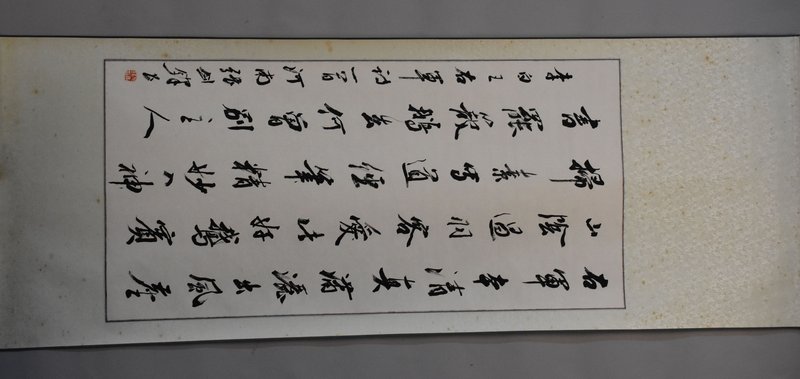 右軍本清真瀟灑出風塵
山陰過羽客愛此好鵝賓
掃素寫道經筆精妙入神
書罷籠鵝去何曾別主人
李白王右軍詩一首河南張劍